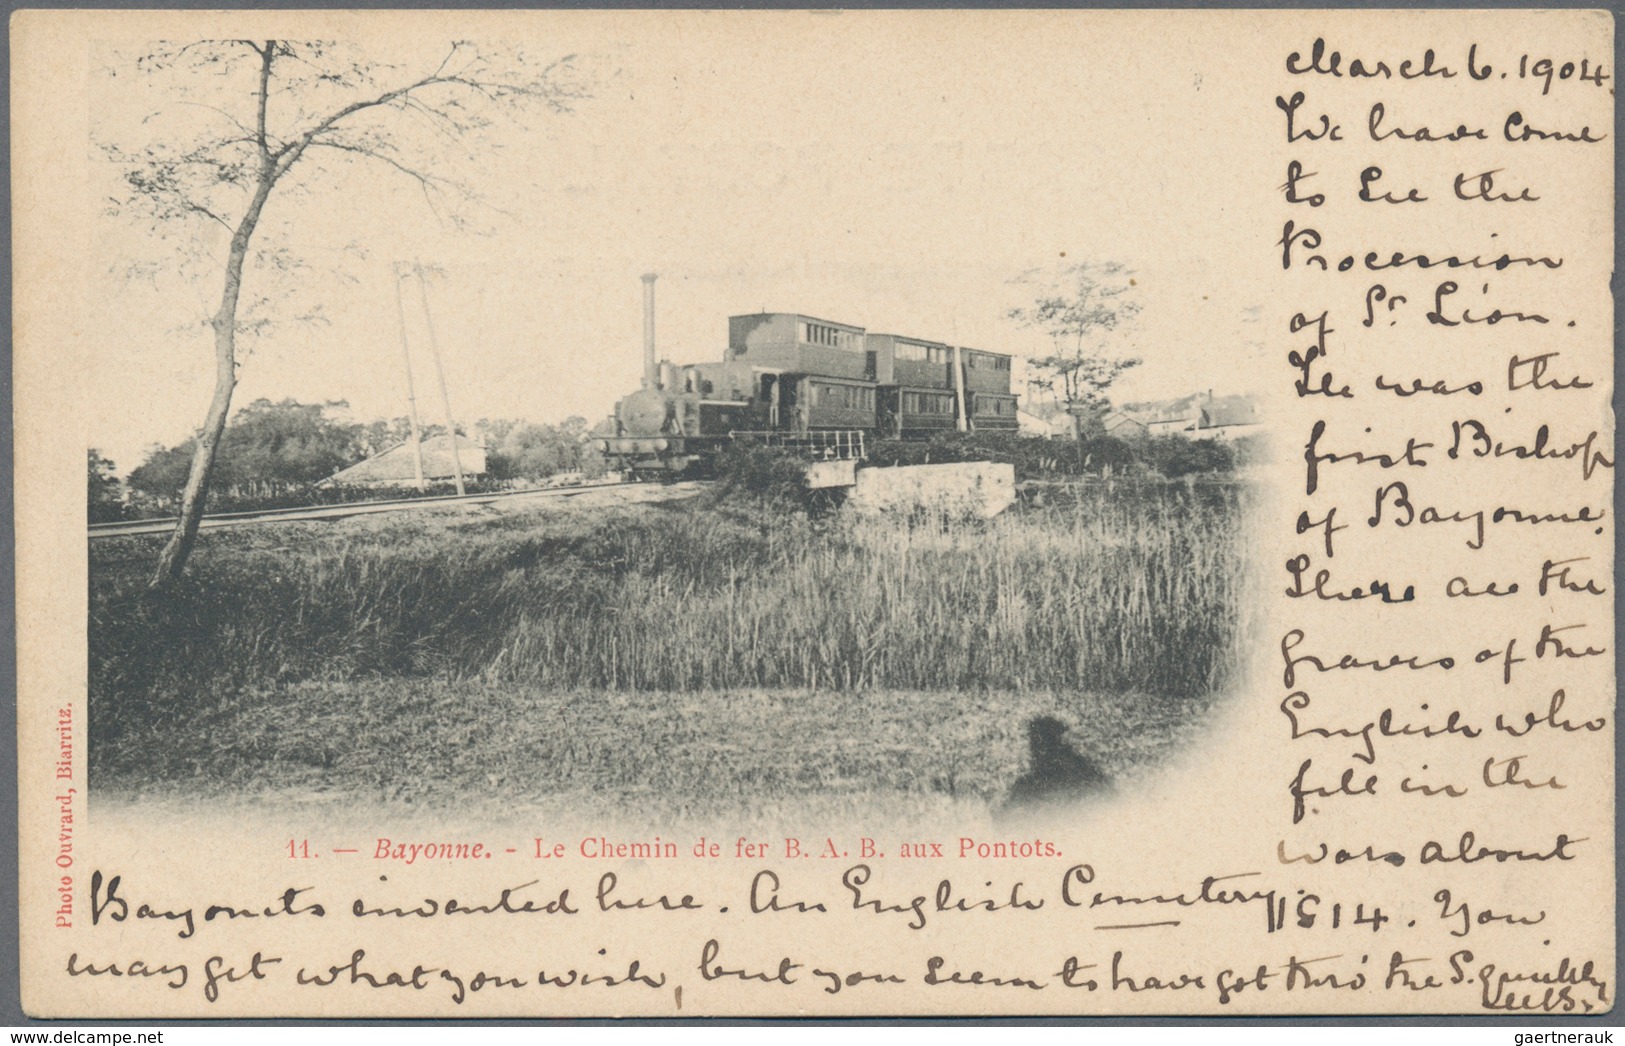 March 6. 1904.
We have come
to see the
Procession
of St. Léon.
He was the
first Bishop
of Bayonne.
There are the
graves of the
English who
fell in the
wars about
1814. You
11. — Bayonne. - Le Chemin de fer B. A. B. aux Pontots.
Photo Ouvrard, Biarritz.
Bayonets invented here. An English Cemetery.
may get what you wish, but you seem to have got thro' the S. quickly
delcampe.net
gaertnerauk